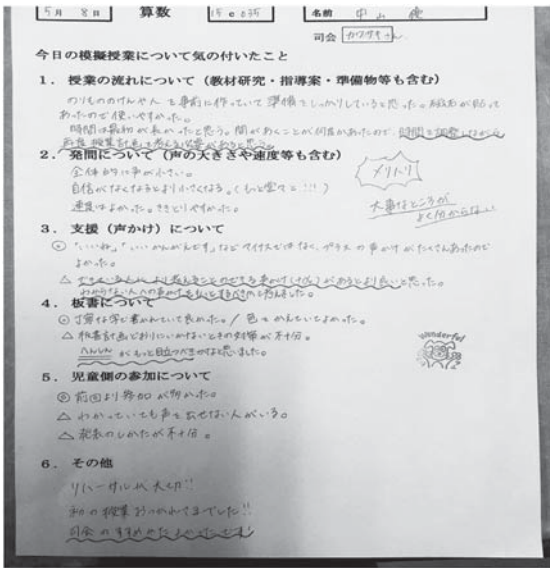 5月 8日 算数 15e035 名前 中山
司会 カワサキさん
今日の模擬授業について気の付いたこと
1. 授業の流れについて（教材研究・指導案・準備物等も含む）
のりもののけんや人を事前に作っていて準備もしっかりしていると思った。が貼って
あったので使いやすかった。
時間は最初が長かったと思う。間があくことが何度かあったので、時間を調整しながら
授業計画を考える必要があると思う。
2. 発問について（声の大きさや速度等も含む）
全体的に声が小さい。
自信がなくなるとより小さくなる。（もっと堂々と!!!）
速度はよかった。ききとりやすかった。
メリハリ
大事なところが
よく分からない
3. 支援（声かけ）について
◎「いいね」「いいかんがえだす」などマイナスではなく、プラスの声かけがたくさんあったので
よかった。
△ より考えることのできる声かけがあるとより良いと思った。
わからない人への声かけも
4. 板書について
◎ 丁寧な字で書かれていて良かった。/ 色もかんたんでよかった。
△ 板書計画どおりにいかないときの対策が不十分。
がもっと目立つべきかなと思いました。
wonderful
5. 児童側の参加について
◎ 前回より参加が多かった。
△ わかっていても声を出せない人がいる。
△ 発表のしかたが不十分。
6. その他
リハーサルは大切!!
初の授業おつかれさまでした!!
司会のすすめかたよかったです!